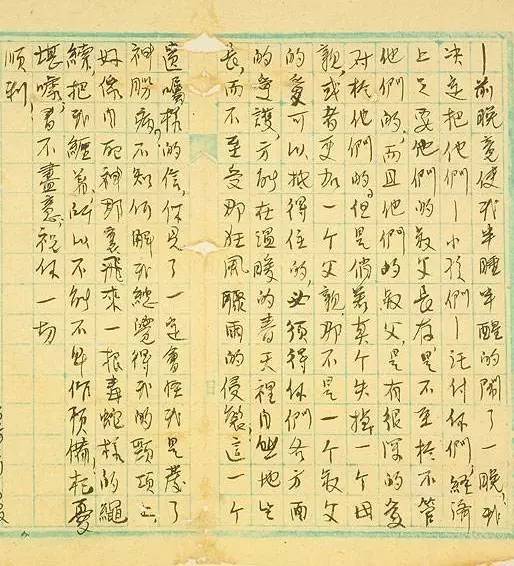 —前晚竟使我半睡半醒的鬧了一晚,我
决定把他們—小孩們—託付你們,經濟
上只要他們的叔父長存,是不至於不管
他們的,而且他們的叔父,是有很深的愛
对於他們的,但是倘若真个失掉一个母
親,或者更加一个父親,那不是一个叔父
的愛可以抵得住的,必須得你們各方面
的愛護,方能在溫暖的青天裡自然地生
長,而不至受那狂風驟雨的侵襲,這一个
遺囑样的信,你見了一定會怪我是發了
神經病,不知何解,我總覺得我的頸項上,
好像自死神那裏飛來一根毒蛇樣的繩
索,把我纏着,所以不能不早作預備,杞憂
堪嚎,書不盡意,祝你一切
順利,